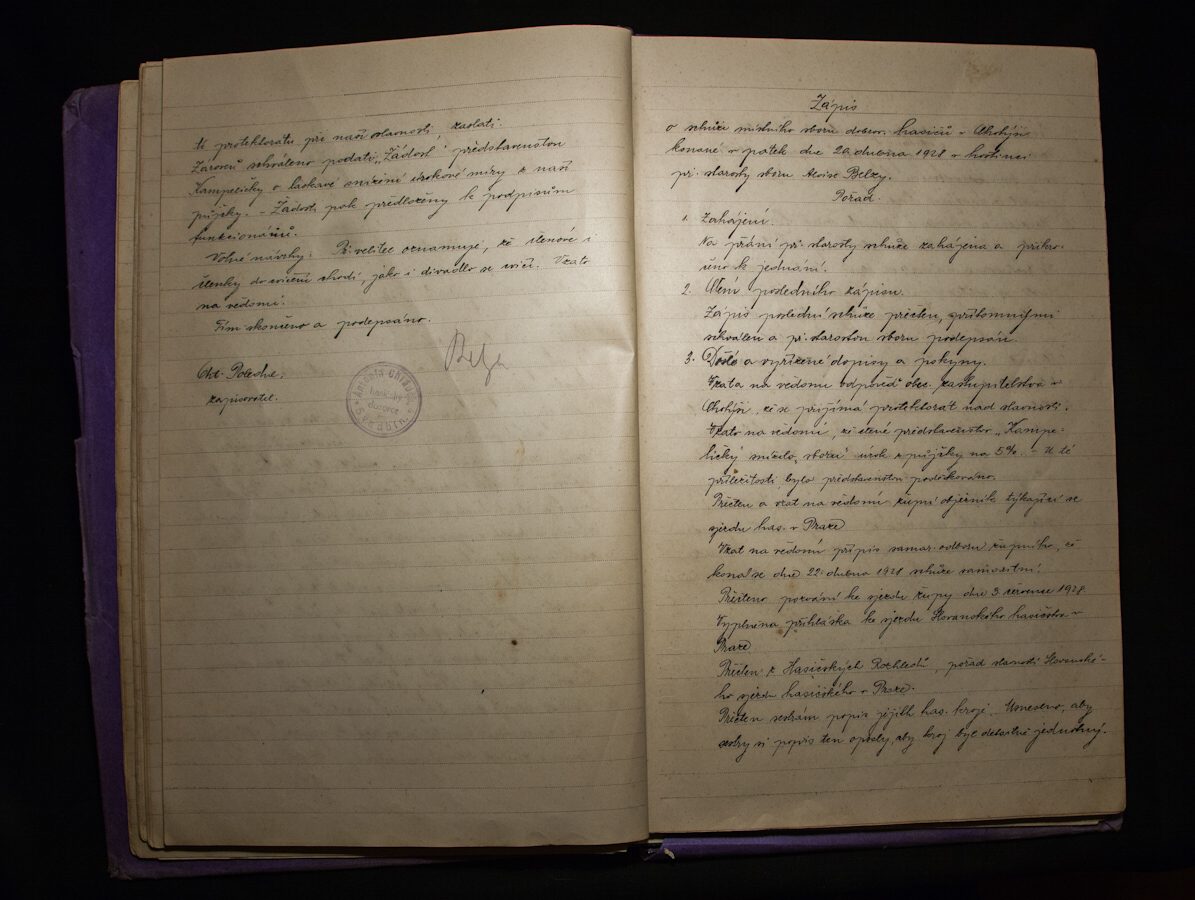 ti protektorátu při naší slavnosti, zaslati.
Zároveň schváleno podati „Žádost" představenstvu
Kampeličky o laskavé snížení úrokové míry z naší
půjčky. – Žádost pak předloženy k podpisům
funkcionářů.
Volné návrhy: Př. velitel oznamuje, že členové i
členky do cvičení chodí, jako i divadlo se cvičí. Vzato
na vědomí.
Tím skončeno a podepsáno.
Belza
Old. Poledne.
zapisovatel.
Zápis
o schůzi místního sboru dobrov. hasičů v Chotýši
konané v pátek dne 20. dubna 1928 v hostinci
př. starosty sboru Aloise Belzy.
Pořad
1. Zahájení.
Na přání př. starosty schůze zahájena a přikro-
čeno k jednání.
2. Čtení posledního zápisu.
Zápis poslední schůze přečten, přítomnými
schválen a př. starostou sboru podepsán.
3. Došlé a vyřízené dopisy a pokyny.
Vzata na vědomí odpověď obec. zastupitelstva v
Chotýši, že se přijímá protektorát nad slavností.
Vzato na vědomí, že ctěné představenstvo „Kampe-
ličky" snížilo „sboru" úrok z půjčky na 5%. – U té
příležitosti bylo představenstvu poděkováno.
Přečten a vzat na vědomí župní objezník týkající se
sjezdu has. v Praze
Vzat na vědomí přípis samar. odboru župního, že
konal se dne 22. dubna 1928 schůze samaritní.
Přečteno pozvání ke sjezdu župy dne 3 července 1928.
Vyplněna přihláška ke sjezdu Slovanského hasičstva v
Praze
Přečten z Hasičských Rozhledů, pořad slavností Slovanské-
ho sjezdu hasičského v Praze.
Přečten sestrám popis jejich has. kroje. Usneseno, aby
sestry si popis ten opsaly, aby kroj byl detailně jednotný.